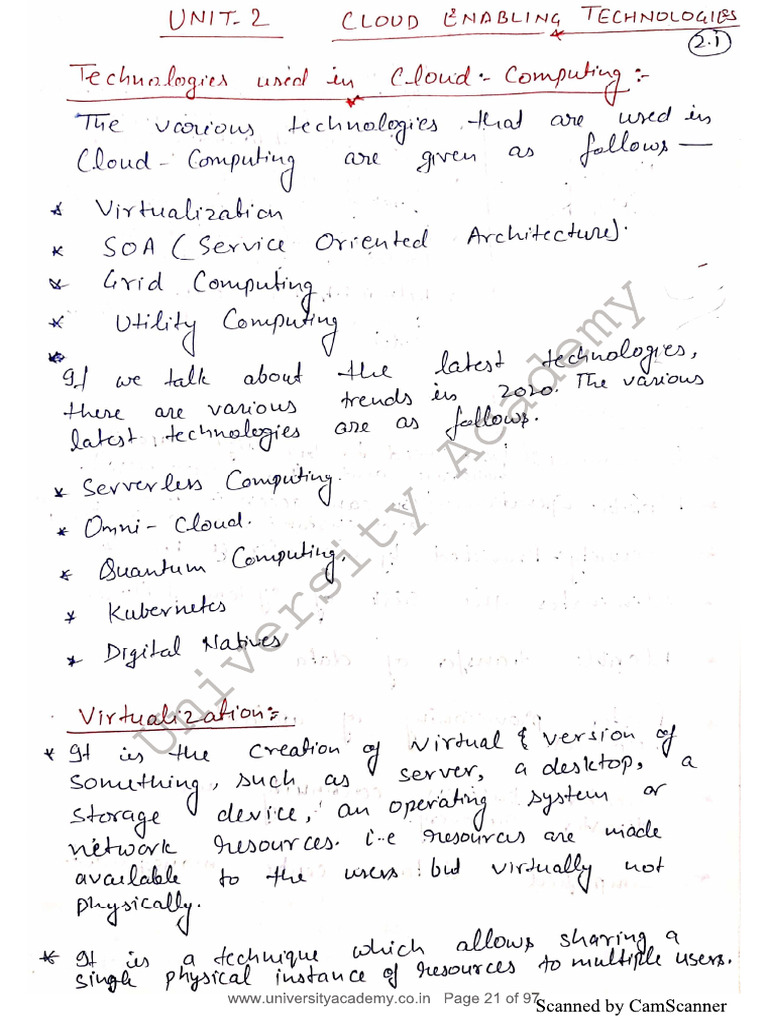 UNIT-2 CLOUD ENABLING TECHNOLOGIES
2.1
Technologies used in Cloud-Computing:-
The various technologies that are used in
Cloud-Computing are given as follows —
* Virtualization
* SOA (Service Oriented Architecture).
* Grid Computing
* Utility Computing
*
If we talk about the latest technologies,
there are various trends in 2020. The various
latest technologies are as follows.
* Serverless Computing.
* Omni-Cloud.
* Quantum Computing.
* Kubernetes
* Digital Natives
Virtualization:-
* It is the creation of virtual & version of
something, such as server, a desktop, a
storage device, an operating system or
network resources. i.e resources are made
available to the users but virtually not
physically.
* It is a technique which allows sharing a
single physical instance of resources to multiple users.
University Academy
www.universityacademy.co.in Page 21 of 97
Scanned by CamScanner